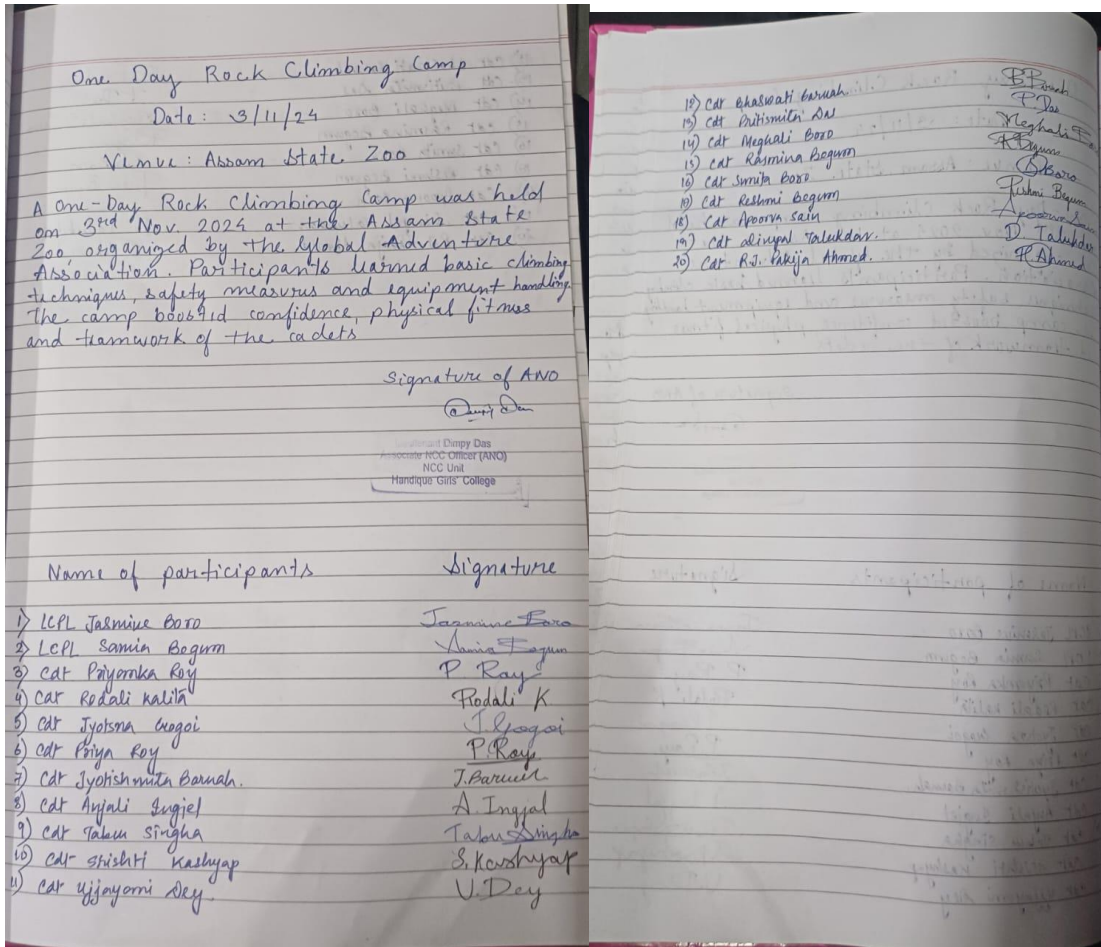 One Day Rock Climbing Camp
Date: 3/11/24
Venue: Assam State Zoo
A one-Day Rock Climbing Camp was held
on 3rd Nov. 2024 at the Assam State
Zoo, organized by the Global Adventure
Association. Participants learned basic climbing
techniques, safety measures and equipment handling.
The camp boosted confidence, physical fitness
and teamwork of the cadets
Signature of ANO
Lieutenant Dimpy Das
Associate NCC Officer (ANO)
NCC Unit
Handique Girls' College
Name of participants Signature
1) LCPL Jasmine Boro Jasmine Boro
2) LCPL Samia Begum Samia Begum
3) Cdt Priyomka Roy P. Ray
4) Cdt Rodali Kalita Rodali K
5) Cdt Jyotsna Gogoi J. Gogoi
6) Cdt Priya Roy P. Roy
7) Cdt Jyotishmita Baruah. J. Baruah
8) Cdt Anjali Ingjel A. Ingjal
9) Cdt Tabu Singha Tabu Singha
10) Cdt Shishti Kashyap S. Kashyap
11) Cdt Ujjayani Dey U. Dey
12) Cdt Bhaswati Baruah B Baruah
13) Cdt Pritismita Das P. Das
14) Cdt Meghali Boro Meghali Boro
15) Cdt Rasmina Begum R Begum
16) Cdt Sumita Boro SBoro
17) Cdt Reshmi Begum Reshmi Begum
18) Cdt Apoorva Sain Apoorva Sain
19) Cdt Talukdar. D. Talukdar
20) Cdt R.J. Pakija Ahmed. P. Ahmed